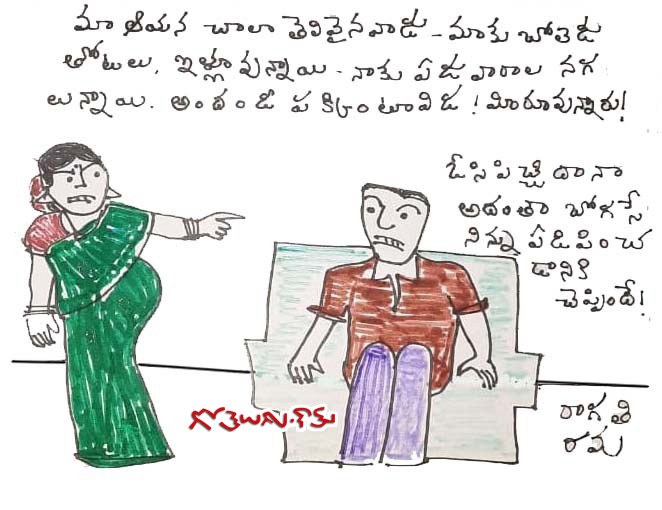 మా ఆయన చాలా తెలివైనవాడు - మాకు బోలెడు
తోటలు, ఇళ్లూ వున్నాయి - నాకు ఏడు వారాల నగ
లున్నాయి. అందండీ పక్కింటావిడ! మీరూవున్నారు!
ఓసి పిచ్చిదానా
అదంతా బోగస్సే
నిన్ను ఏడిపించ
డానికి
చెప్పిందే!
గోతెలుగు.కామ్
రాగతి
రమ